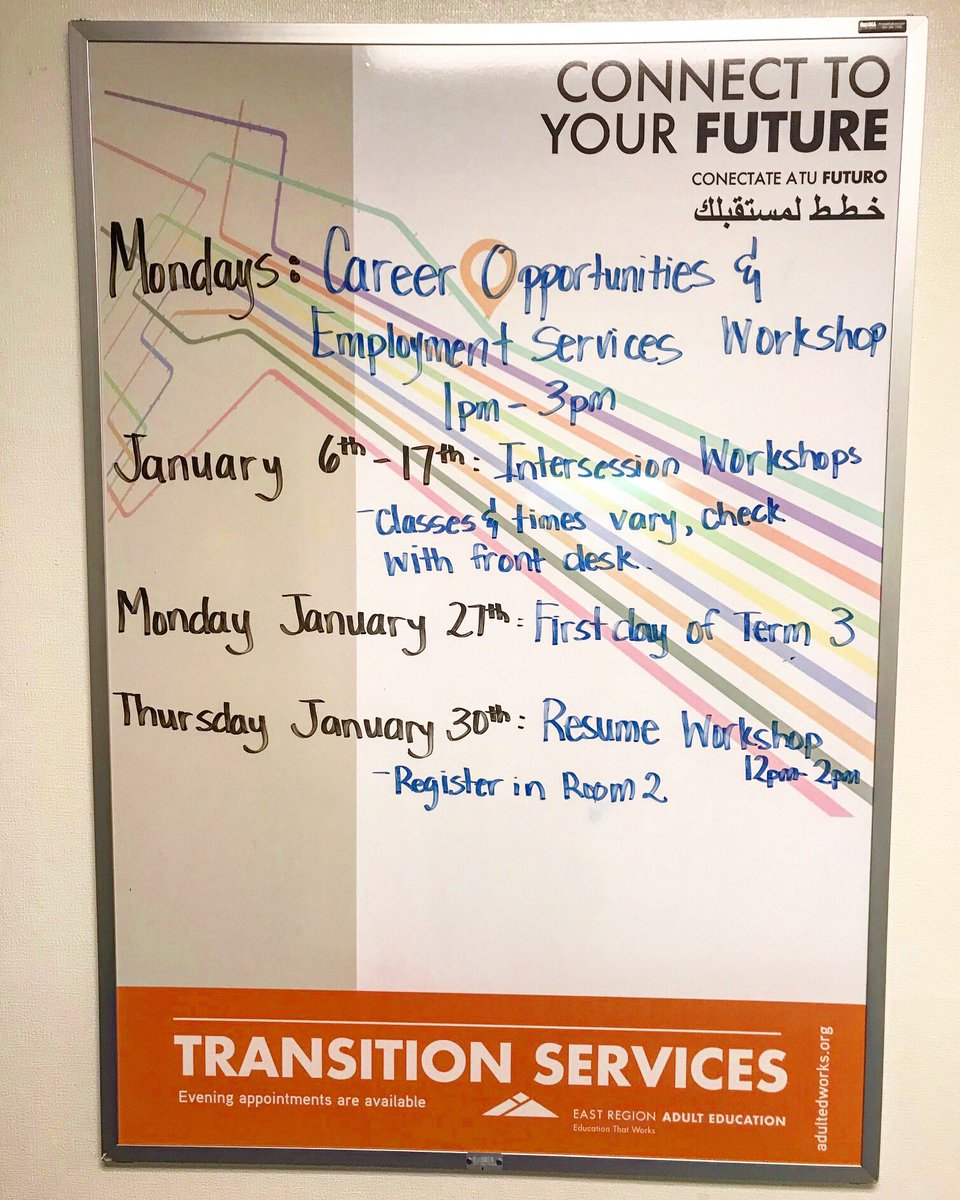 CONNECT TO
YOUR FUTURE
CONECTATE A TU FUTURO
خطط لمستقبلك
Mondays: Career Opportunities &
Employment Services Workshop
1pm - 3pm
January 6th - 17th: Intersession Workshops
- Classes & times vary, check
with front desk.
Monday January 27th: First day of Term 3
Thursday January 30th: Resume Workshop
12pm - 2pm
- Register in Room 2
TRANSITION SERVICES
Evening appointments are available
EAST REGION ADULT EDUCATION
Education That Works
adultedworks.org